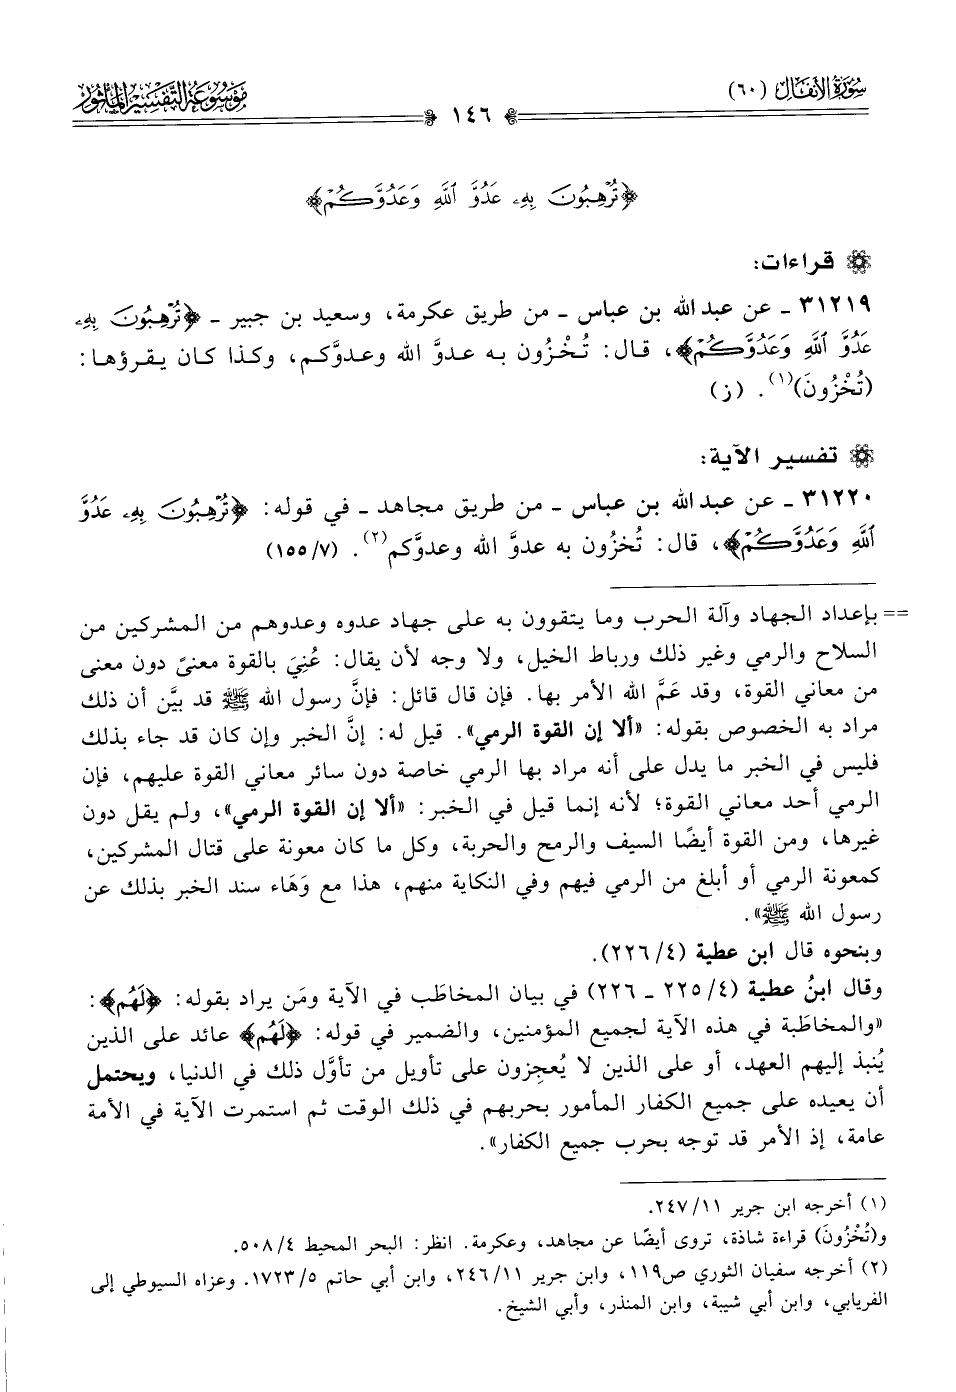 سورة الأنفال (٦٠)
١٤٦
موسوعة التفسير المأثور
﴿تُرْهِبُونَ بِهِۦ عَدُوَّ ٱللَّهِ وَعَدُوَّكُمْ﴾
قراءات:
٣١٢١٩ ـ عن عبد الله بن عباس ـ من طريق عكرمة، وسعيد بن جبير ـ ﴿تُرْهِبُونَ بِهِۦ
عَدُوَّ ٱللَّهِ وَعَدُوَّكُمْ﴾، قال: تُخْزُون به عدوَّ الله وعدوَّكم، وكذا كان يقرؤها:
(تُخْزُونَ)(١). (ز)
تفسير الآية:
٣١٢٢٠ ـ عن عبد الله بن عباس ـ من طريق مجاهد ـ في قوله: ﴿تُرْهِبُونَ بِهِۦ عَدُوَّ
ٱللَّهِ وَعَدُوَّكُمْ﴾، قال: تُخزُون به عدوَّ الله وعدوَّكم(٢). (٧/ ١٥٥)
== بإعداد الجهاد وآلة الحرب وما يتقوون به على جهاد عدوه وعدوهم من المشركين من
السلاح والرمي وغير ذلك ورباط الخيل، ولا وجه لأن يقال: عُنِيَ بالقوة معنىً دون معنى
من معاني القوة، وقد عَمَّ الله الأمر بها. فإن قال قائل: فإنَّ رسول الله ﷺ قد بيَّن أن ذلك
مراد به الخصوص بقوله: «ألا إن القوة الرمي». قيل له: إنَّ الخبر وإن كان قد جاء بذلك
فليس في الخبر ما يدل على أنه مراد بها الرمي خاصة دون سائر معاني القوة عليهم، فإن
الرمي أحد معاني القوة؛ لأنه إنما قيل في الخبر: «ألا إن القوة الرمي»، ولم يقل دون
غيرها، ومن القوة أيضًا السيف والرمح والحربة، وكل ما كان معونة على قتال المشركين،
كمعونة الرمي أو أبلغ من الرمي فيهم وفي النكاية منهم، هذا مع وَهَاء سند الخبر بذلك عن
رسول الله ﷺ».
وبنحوه قال ابن عطية (٤/ ٢٢٦).
وقال ابنُ عطية (٤/ ٢٢٥ ـ ٢٢٦) في بيان المخاطَب في الآية ومَن يراد بقوله: ﴿لَهُم﴾:
«والمخاطَبة في هذه الآية لجميع المؤمنين، والضمير في قوله: ﴿لَهُم﴾ عائد على الذين
يُنبذ إليهم العهد، أو على الذين لا يُعجِزون على تأويل من تأوَّل ذلك في الدنيا، ويحتمل
أن يعيده على جميع الكفار المأمور بحربهم في ذلك الوقت ثم استمرت الآية في الأمة
عامة، إذ الأمر قد توجه بحرب جميع الكفار».
(١) أخرجه ابن جرير ١١/ ٢٤٧.
و(تُخْزُونَ) قراءة شاذة، تروى أيضًا عن مجاهد، وعكرمة. انظر: البحر المحيط ٤/ ٥٠٨.
(٢) أخرجه سفيان الثوري ص١١٩، وابن جرير ١١/ ٢٤٦، وابن أبي حاتم ٥/ ١٧٢٣. وعزاه السيوطي إلى
الفريابي، وابن أبي شيبة، وابن المنذر، وأبي الشيخ.